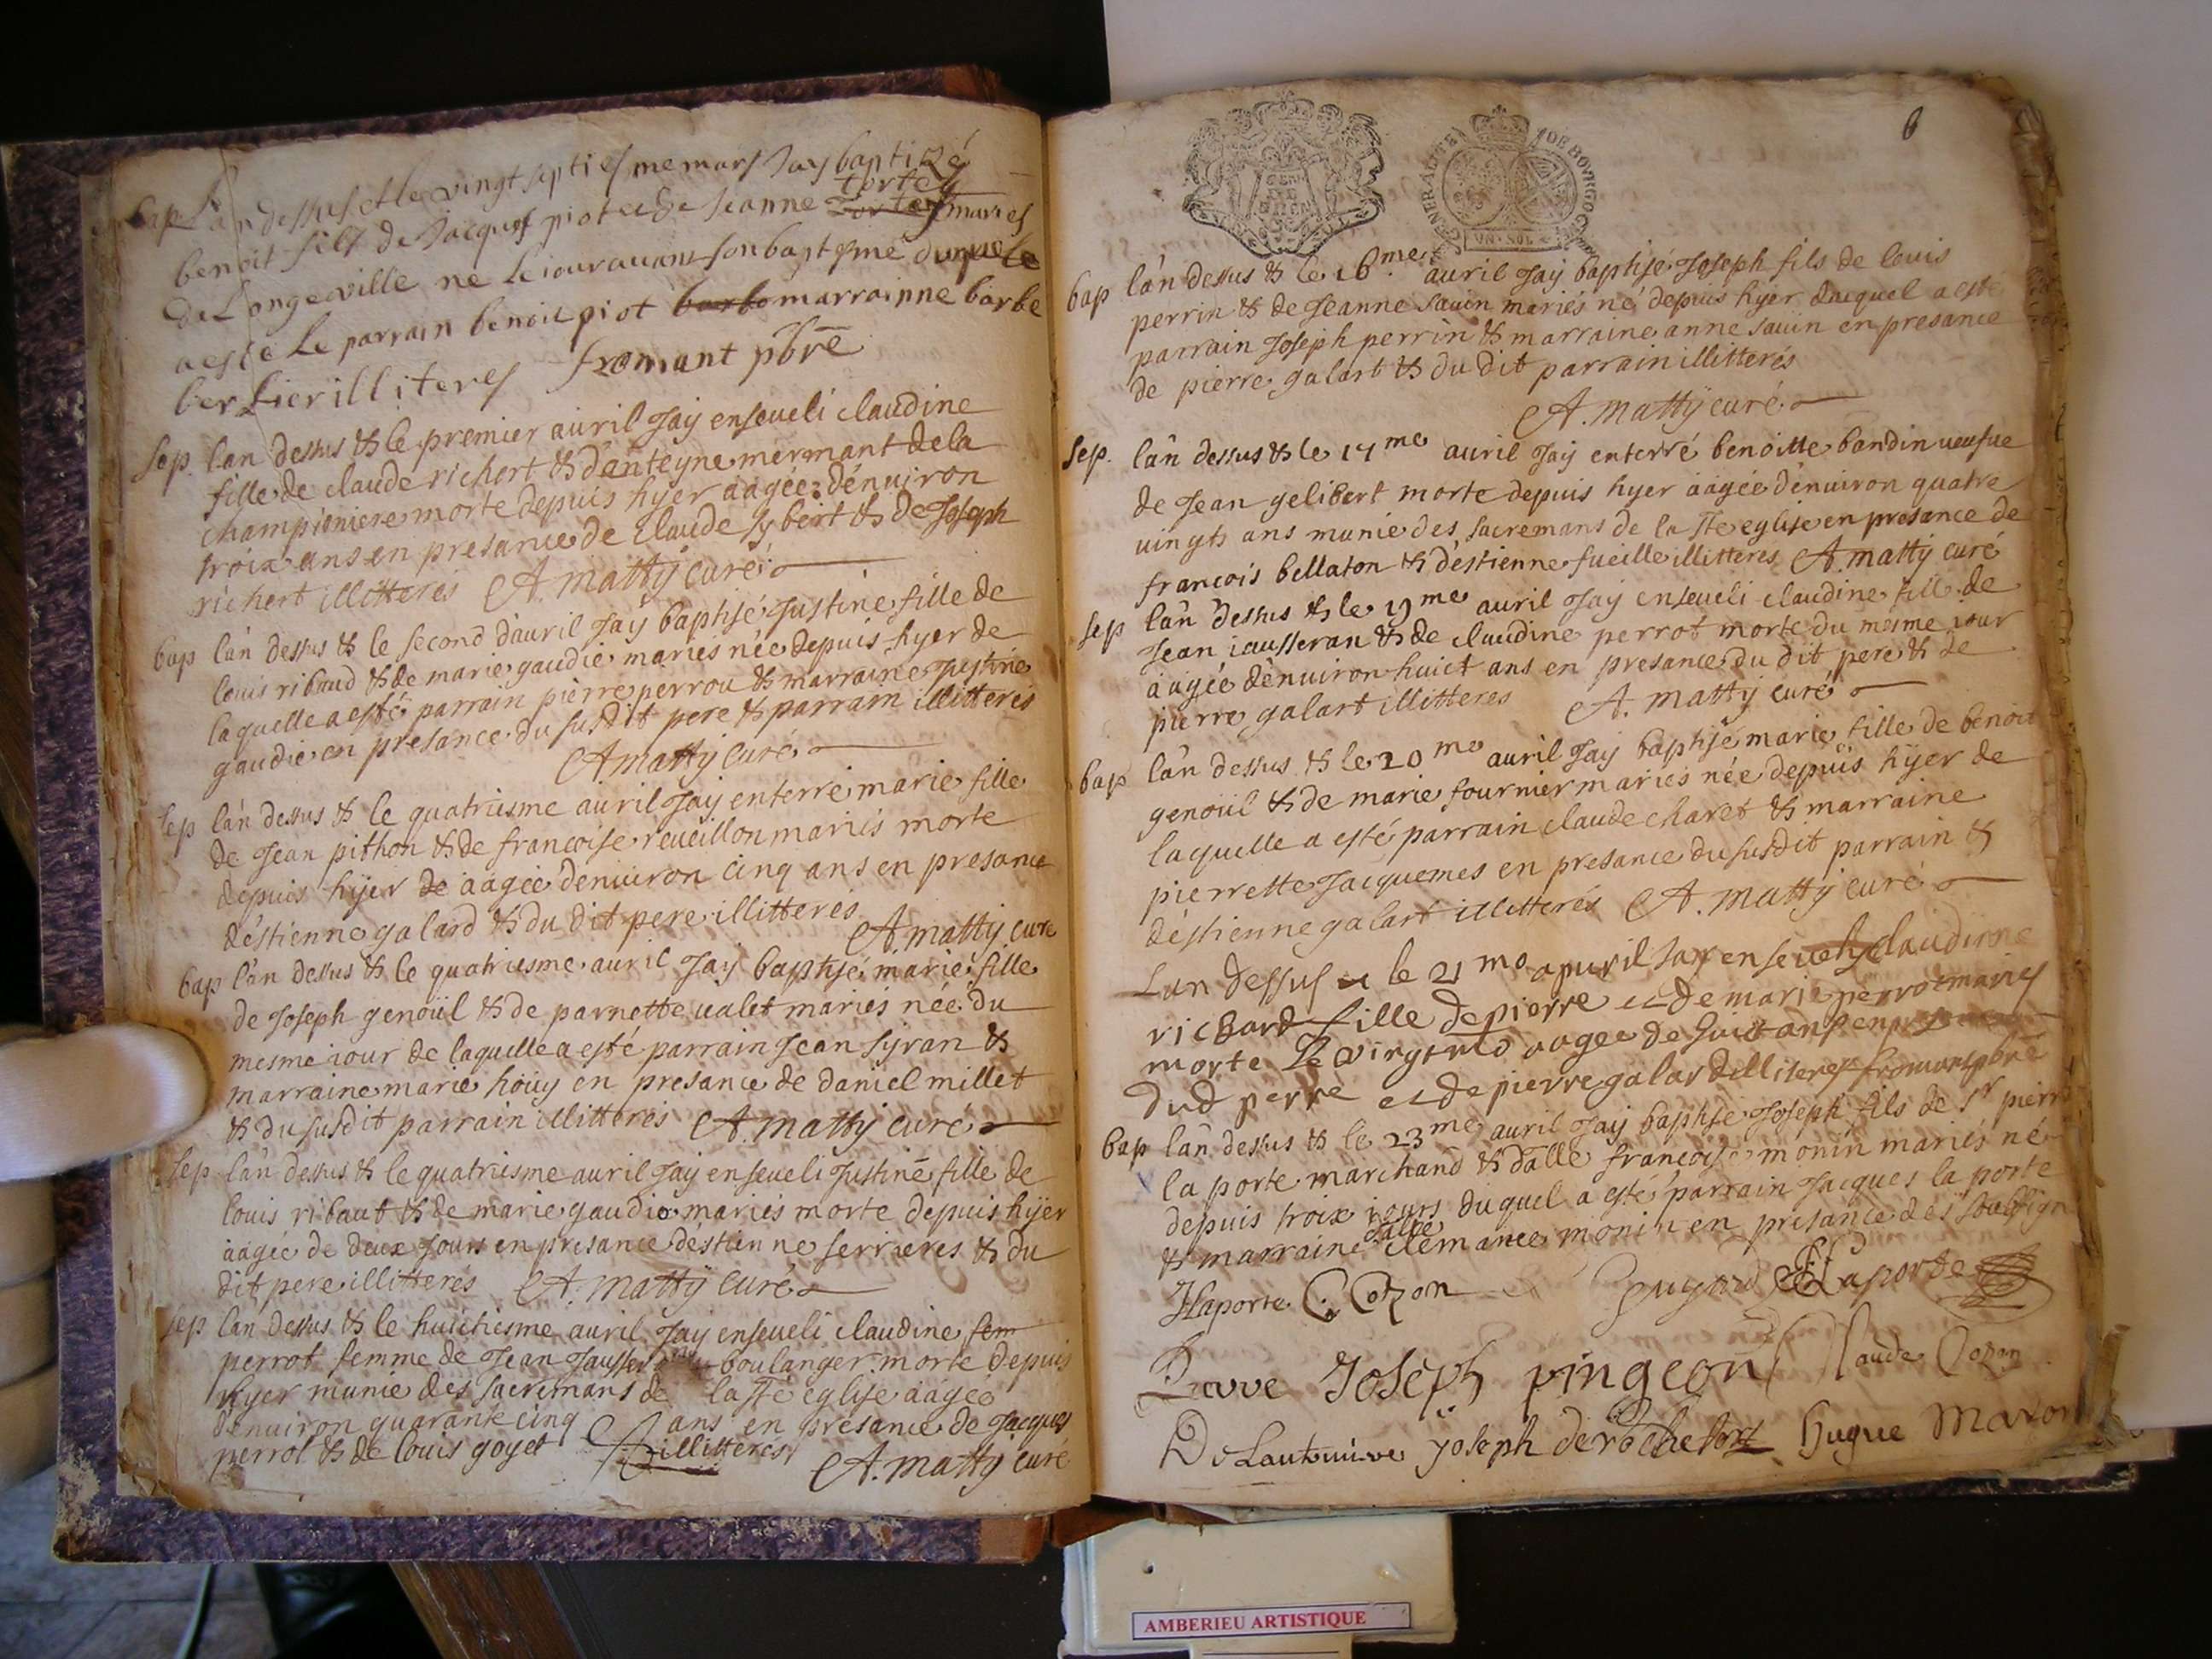 bap L'an dessus et le vingt septiesme mars Jay baptizé
tortey
benoit fils de Jacques piot et de Jeanne tortey maries
de Longeville ne le iour auant son baptesme duquel
a esté Le parrain benoit piot barbe marrainne barbe
berlier illiteres fromant pbre
sep. lan dessus & le premier auril Jaÿ enseueli claudine
fille de claude richert & danteyne mermant de la
championiere morte depuis hÿer aagée d'enuiron
troix ans en presance de claude sybert & de Joseph
richert illitteres A. mattÿ curé
bap lán dessus & le second dauril Jaÿ baptisé Justine fille de
louis ribaud & de marie gaudié mariés née depuis hyer de
laquelle a esté parrain pierre perrou & marraine Justine
gaudie en presance du susdit pere & parrain illitteres
A mattÿ curé
sep lán dessus & le quatriesme auril Jaÿ enterré marie fille
de Jean pithon & de francoise reueillon mariés morte
depuis hÿer de aagée denuiron cinq ans en presance
déstienne galard & du dit pere illitterés
A. mattÿ curé
bap lán dessus & le quatriesme auril Jaÿ baptisé marie fille
de Joseph genoüil & de parnette ualet mariés née du
mesme iour de laquelle a esté parrain Jean syran &
marraine marie hoüy en presance de daniel millet
& du susdit parrain illitterés A. mattÿ curé
sep lán dessus & le quatriesme auril Jaÿ enseueli Justine fille de
louis ribaut & de marie gaudie mariés morte depuis hÿer
aagée de deux Jours en presance destienne serrieres & du
dit pere illitterés A. mattÿ curé
sep lán dessus & le huictiesme auril Jaÿ enseueli claudine fem
perrot femme de Jean Jausseran boulanger morte depuis
hyer munie des sacremans de la ste eglise aagée
denuiron quarante cinq ans en presance de Jacques
perrot & de louis goyet illitteres
A. mattÿ curé
6
GENERALITE DE BOVRGOGNE
UN SOL
bap lán dessus & le 16me auril Jaÿ baptisé Joseph fils de louis
perrin & de Jeanne sauin mariés né depuis hÿer duquel a esté
parrain Joseph perrin & marraine anne sauin en presance
de pierre galart & du dit parrain illitterés
A. mattÿ curé
sep. lán dessus & le 17me auril Jaÿ enterré benoitte bandin ueusue
de Jean gelibert morte depuis hyer aagée dénuiron quatre
uingts ans munie des sacremans de la ste eglise en presance de
francois bellaton & déstienne fueille illitteres A. mattÿ curé
sep lán dessus & le 19me auril Jaÿ enseueli claudine fille de
Jean iausseran & de claudine perrot morte du mesme iour
aagée dénuiron huict ans en presance du dit pere & de
pierre galart illitteres A. mattÿ curé
bap lán dessus & le 20me auril Jaÿ baptisé marie fille de benoit
genoüil & de marie fournier mariés née depuis hÿer de
laquelle a esté parrain claude charet & marraine
pierrette Jacquemes en presance du susdit parrain &
déstienne galart illitterés A. mattÿ curé
Lan dessus et le 21me apuril Jay enseuely claudinne
richard fille de pierre et de marie perrot maries
morte le aagee de huict ans en presence
dud perre et de pierre galard illiteres fromant pbre
bap lán dessus & le 23me auril Jaÿ baptisé Joseph fils de sr pierre
la porte marchand & dalle francoise monin mariés né
depuis troix iours duquel a esté parrain Jacques la porte
& marraine dalle clemance monin en presance des soubsign
Jlaporte C. Cozon Guyard Laporte
Joseph pingeon Claude Cozon
Joseph de rochefort hugue Maron
AMBERIEU ARTISTIQUE